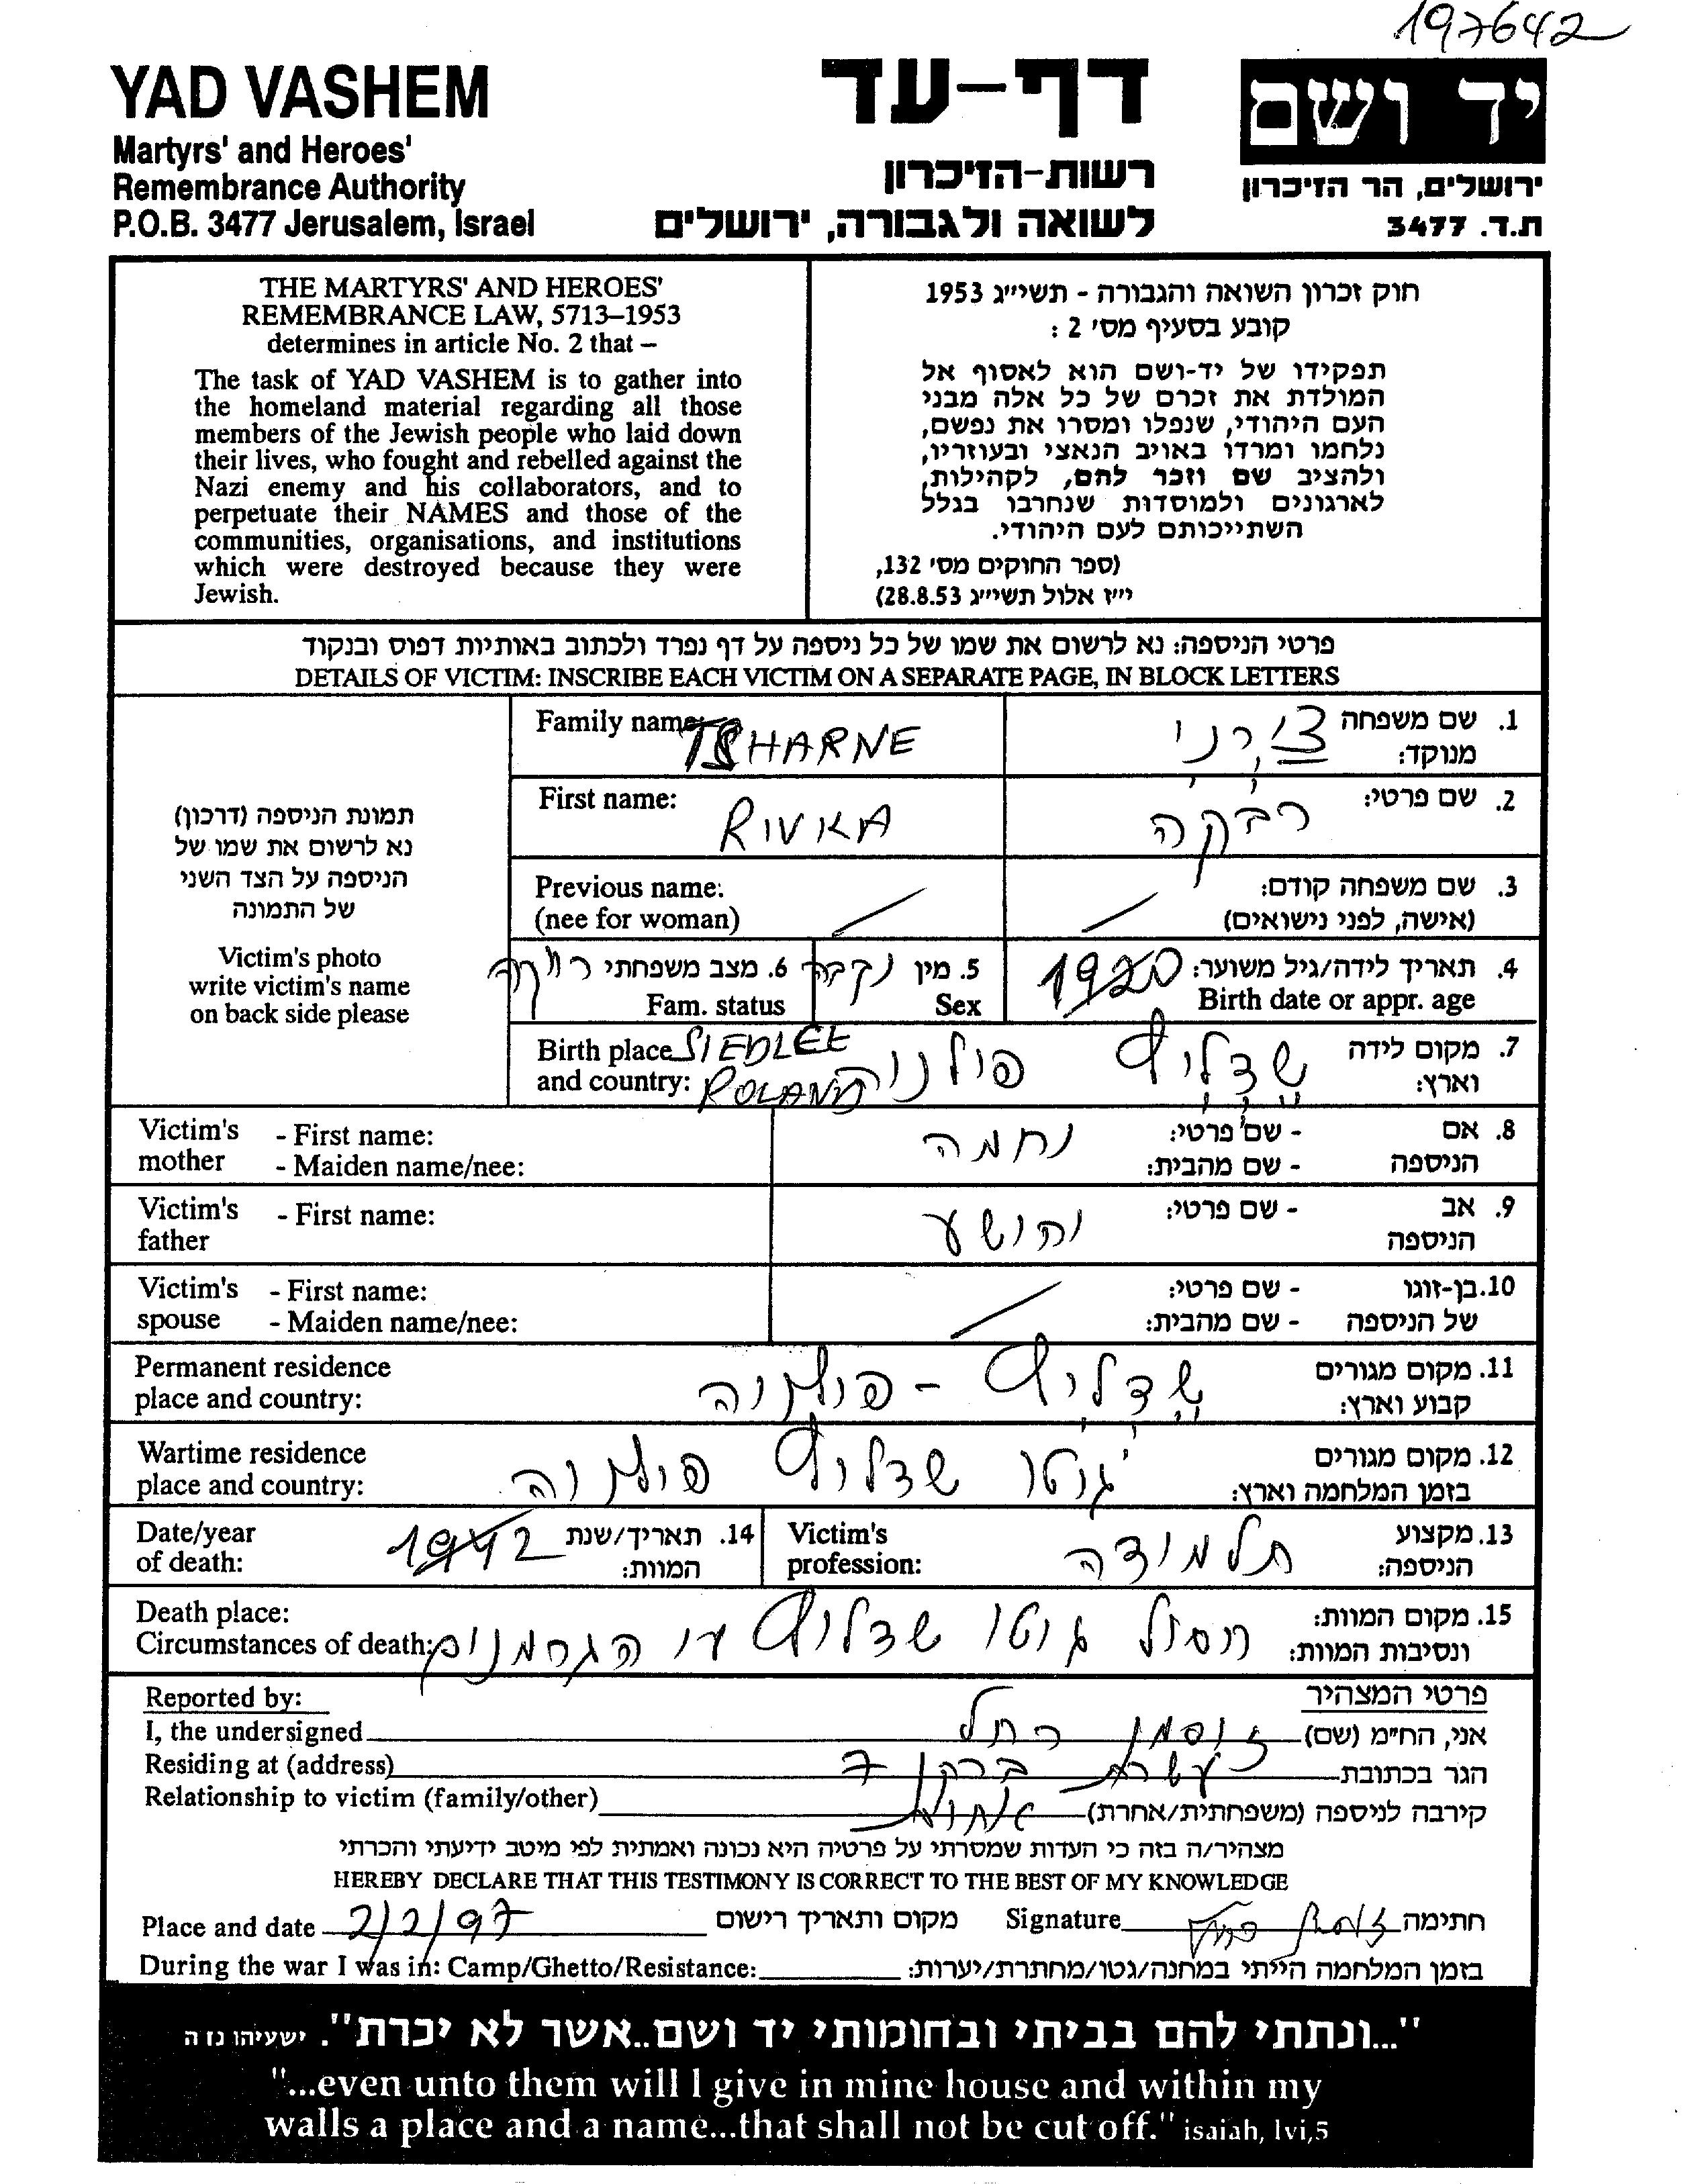 197642
YAD VASHEM
Martyrs' and Heroes'
Remembrance Authority
P.O.B. 3477 Jerusalem, Israel
דף-עד
רשות-הזיכרון
לשואה ולגבורה, ירושלים
יד ושם
ירושלים, הר הזיכרון
ת.ד. 3477
THE MARTYRS' AND HEROES'
REMEMBRANCE LAW, 5713–1953
determines in article No. 2 that –
The task of YAD VASHEM is to gather into
the homeland material regarding all those
members of the Jewish people who laid down
their lives, who fought and rebelled against the
Nazi enemy and his collaborators, and to
perpetuate their NAMES and those of the
communities, organisations, and institutions
which were destroyed because they were
Jewish.
חוק זכרון השואה והגבורה - תשי״ג 1953
קובע בסעיף מס' 2 :
תפקידו של יד-ושם הוא לאסוף אל
המולדת את זכרם של כל אלה מבני
העם היהודי, שנפלו ומסרו את נפשם,
נלחמו ומרדו באויב הנאצי ובעוזריו,
ולהציב שם וזכר להם, לקהילות,
לארגונים ולמוסדות שנחרבו בגלל
השתייכותם לעם היהודי.
(ספר החוקים מס' 132,
י״ז אלול תשי״ג 28.8.53)
פרטי הניספה: נא לרשום את שמו של כל ניספה על דף נפרד ולכתוב באותיות דפוס ובנקוד
DETAILS OF VICTIM: INSCRIBE EACH VICTIM ON A SEPARATE PAGE, IN BLOCK LETTERS
תמונת הניספה (דרכון)
נא לרשום את שמו של
הניספה על הצד השני
של התמונה
Victim's photo
write victim's name
on back side please
Family name: TSHARNE
1. שם משפחה מנוקד: צ'רני
First name: RIVKA
2. שם פרטי: רבקה
Previous name:
(nee for woman)
3. שם משפחה קודם:
(אישה, לפני נישואים)
4. תאריך לידה/גיל משוער: 1920
Birth date or appr. age
5. מין נקבה
Sex
6. מצב משפחתי רווקה
Fam. status
Birth place SIEDLCE
and country: POLAND
7. מקום לידה שדליץ פולניה
וארץ:
Victim's mother
- First name:
- Maiden name/nee:
8. אם הניספה
- שם פרטי: נחמה
- שם מהבית:
Victim's father
- First name:
9. אב הניספה
- שם פרטי: יהושע
Victim's spouse
- First name:
- Maiden name/nee:
10. בן-זוגו של הניספה
- שם פרטי:
- שם מהבית:
Permanent residence
place and country:
11. מקום מגורים שדליץ - פולניה
קבוע וארץ:
Wartime residence
place and country:
12. מקום מגורים גיטו שדליץ פולניה
בזמן המלחמה וארץ:
Date/year
of death:
14. תאריך/שנת המוות: 1942
Victim's
profession:
13. מקצוע הניספה: תלמידה
Death place:
Circumstances of death:
15. מקום המוות:
ונסיבות המוות: חסול גיטו שדליץ ע״י הגרמנים
Reported by:
פרטי המצהיר
I, the undersigned
אני, הח״מ (שם) זוסמן רחל
Residing at (address)
הגר בכתובת ברקן 7
Relationship to victim (family/other)
קירבה לניספה (משפחתית/אחרת) אחות
מצהיר/ה בזה כי העדות שמסרתי על פרטיה היא נכונה ואמתית לפי מיטב ידיעתי והכרתי
HEREBY DECLARE THAT THIS TESTIMONY IS CORRECT TO THE BEST OF MY KNOWLEDGE
Place and date 2/2/97 מקום ותאריך רישום
Signature חתימה זוסמן רחל
During the war I was in: Camp/Ghetto/Resistance:
בזמן המלחמה הייתי במחנה/גטו/מחתרת/יערות:
"...ונתתי להם בביתי ובחומותי יד ושם..אשר לא יכרת". ישעיהו נז ה
"...even unto them will I give in mine house and within my
walls a place and a name...that shall not be cut off." isaiah, lvi,5